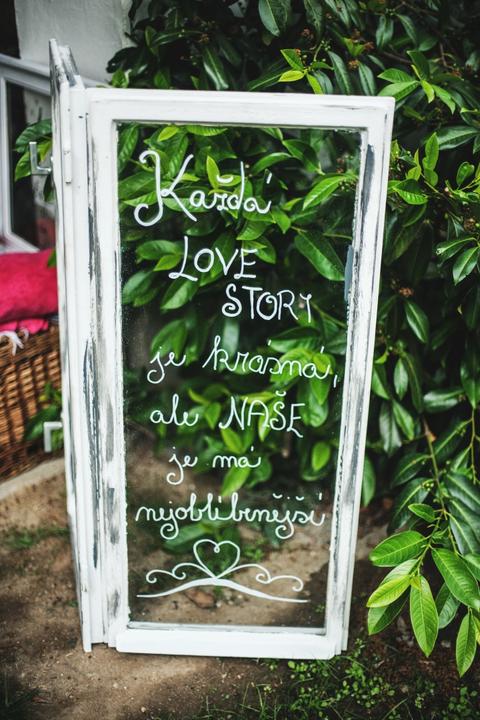 Každá
LOVE
STORY
je krásná,
ale NAŠE
je má
nejoblíbenější